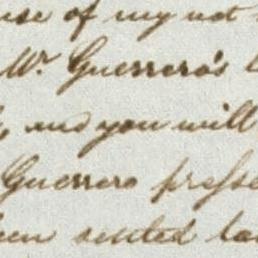 use of my not
Mr. Guerrero's
and you will
Guerrero presse
een seated la